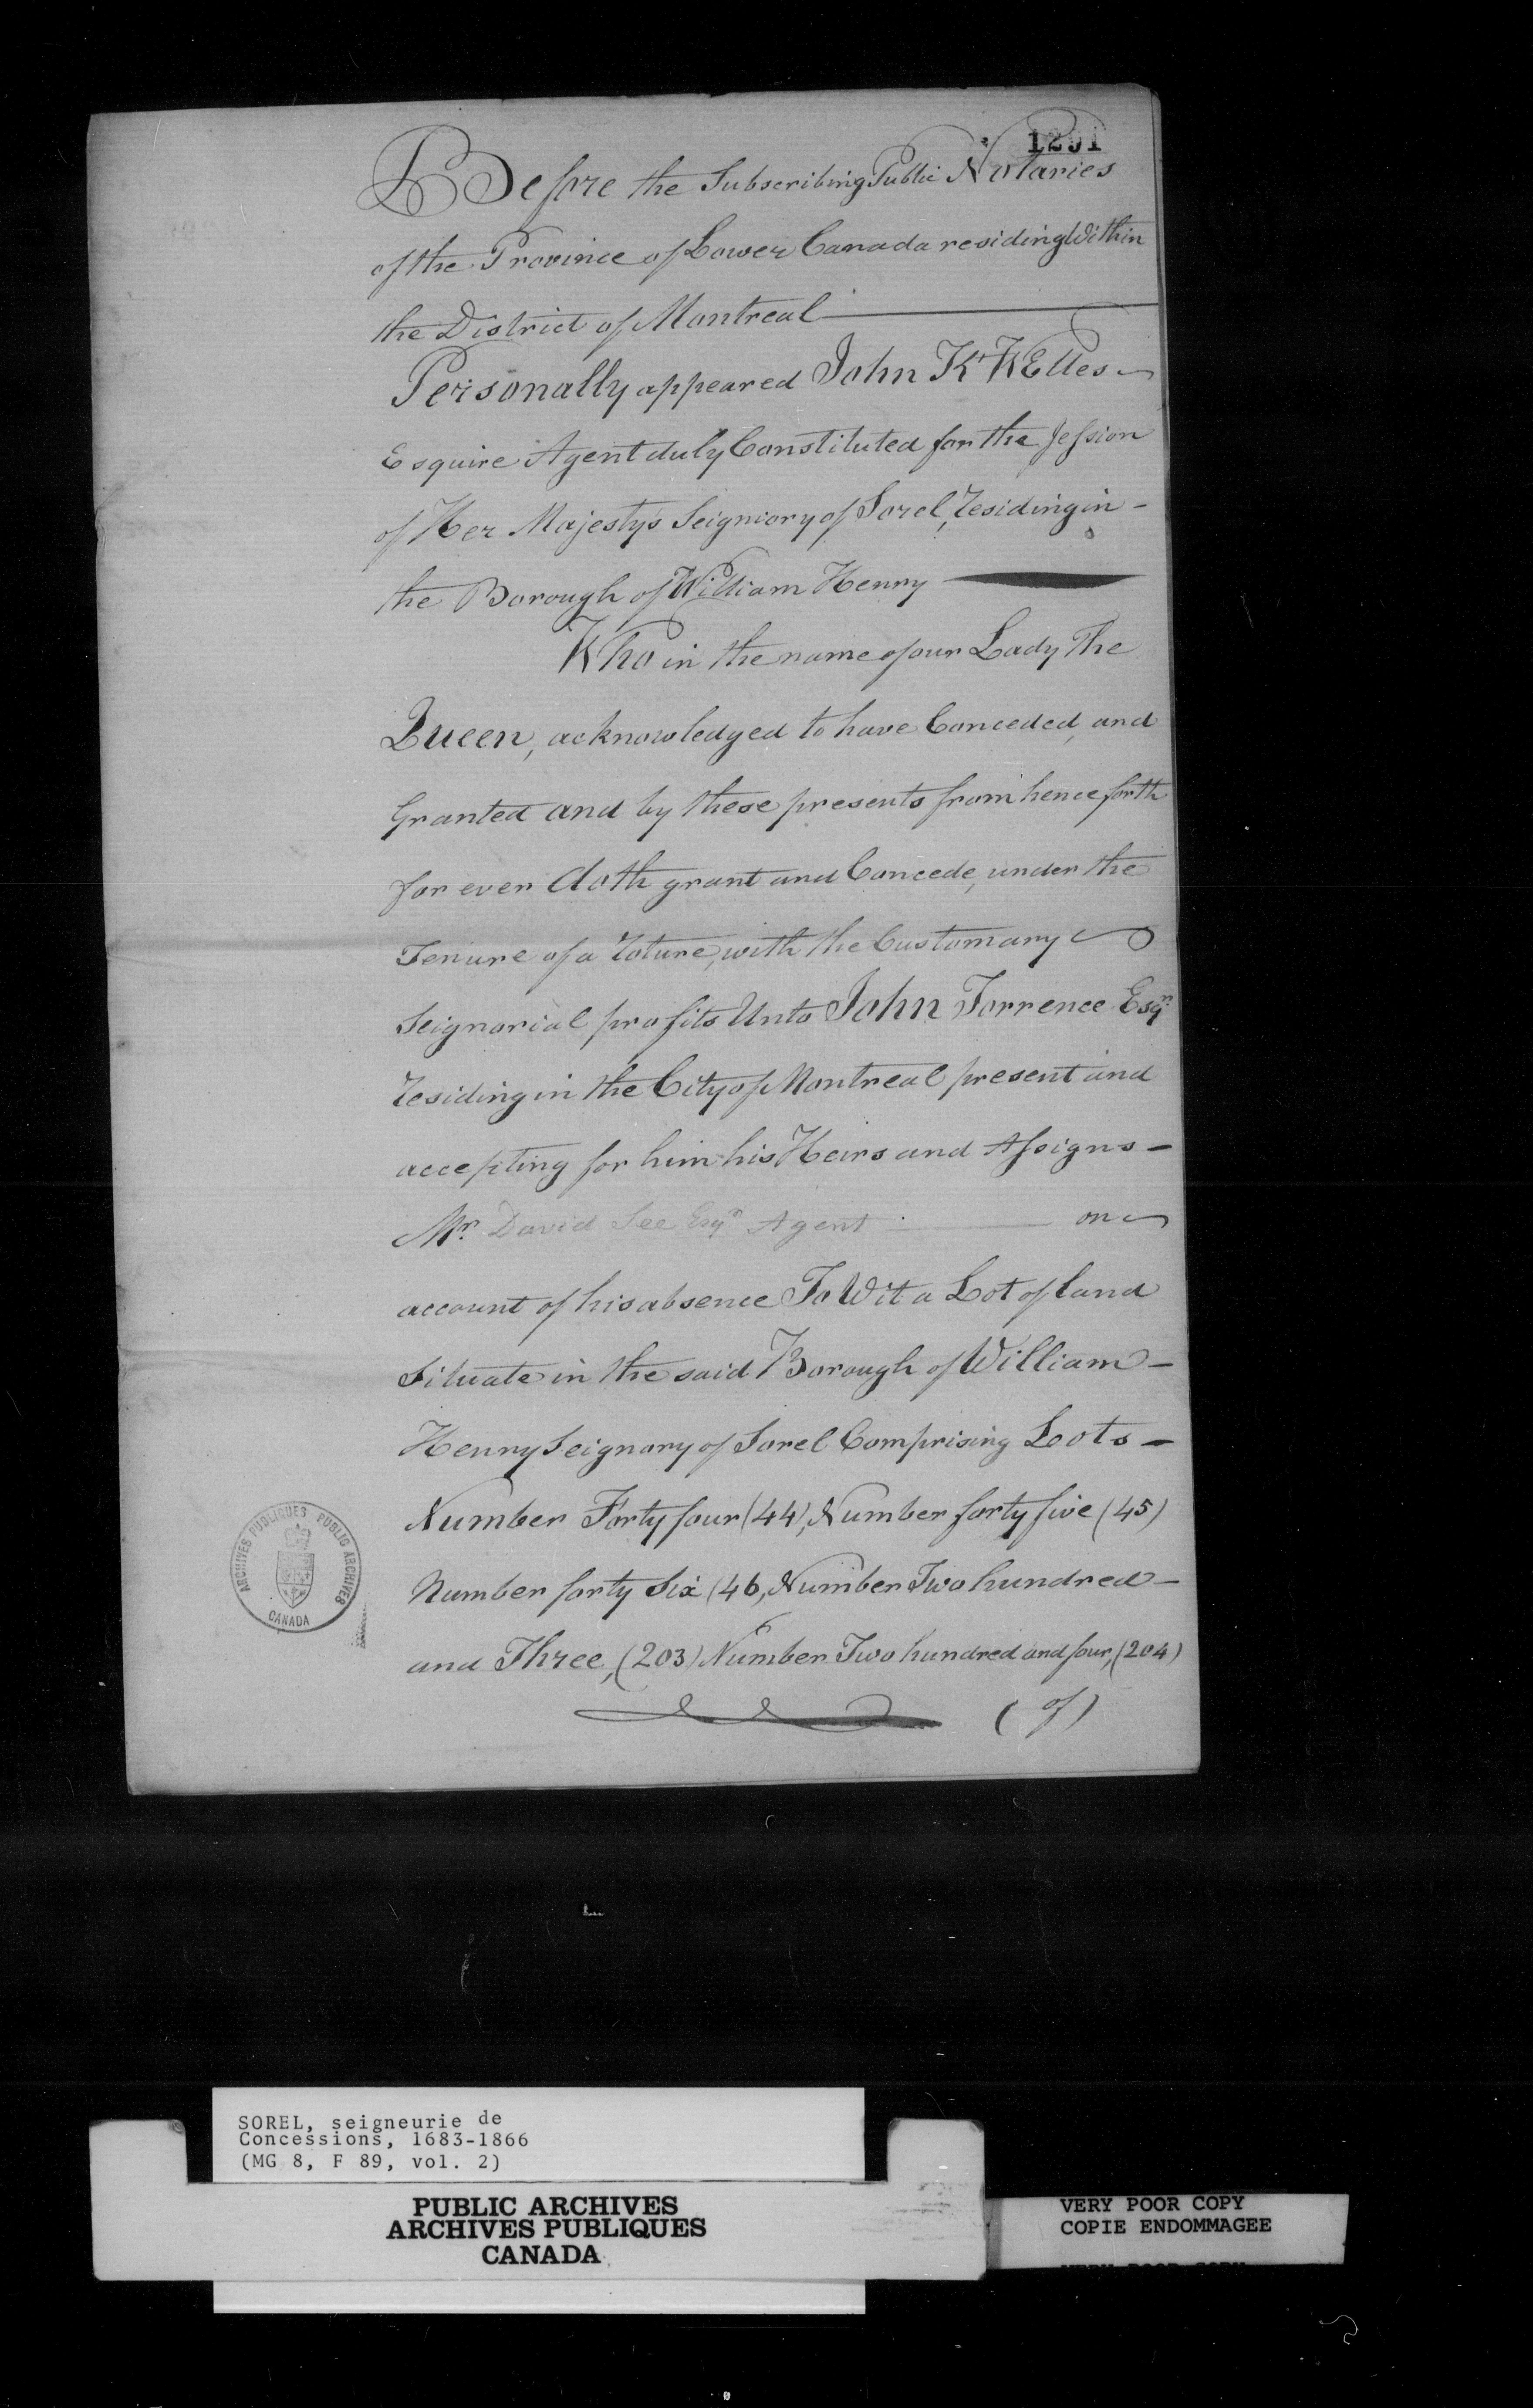 1291
Before the Subscribing Public Notaries
of the Province of Lower Canada residing Within
the District of Montreal
Personally appeared John Kr WElles
Esquire Agent duly Constituted for the Session
of Her Majesty's Seigniory of Sorel, residing in -
the Borough of William Henry
Who in the name of our Lady The
Queen, acknowledged to have Conceded, and
Granted and by these presents from henceforth
for ever doth grant and Concede, under the
Tenure of a roture, with the Customary
Seignorial profits Unto John Torrence Esqr.
residing in the City of Montreal present and
accepting for him his Heirs and Assigns -
Mr. David See Esqr. Agent on
account of his absence To Wit a Lot of land
Situate in the said Borough of William -
Henry Seignory of Sorel Comprising Lots -
Number Forty four (44), Number forty five (45)
Number forty Six (46, Number Two hundred -
and Three, (203) Number Two hundred and four, (204)
(of)
ARCHIVES PUBLIQUES PUBLIC ARCHIVES
CANADA
SOREL, seigneurie de
Concessions, 1683-1866
(MG 8, F 89, vol. 2)
PUBLIC ARCHIVES
ARCHIVES PUBLIQUES
CANADA
VERY POOR COPY
COPIE ENDOMMAGEE